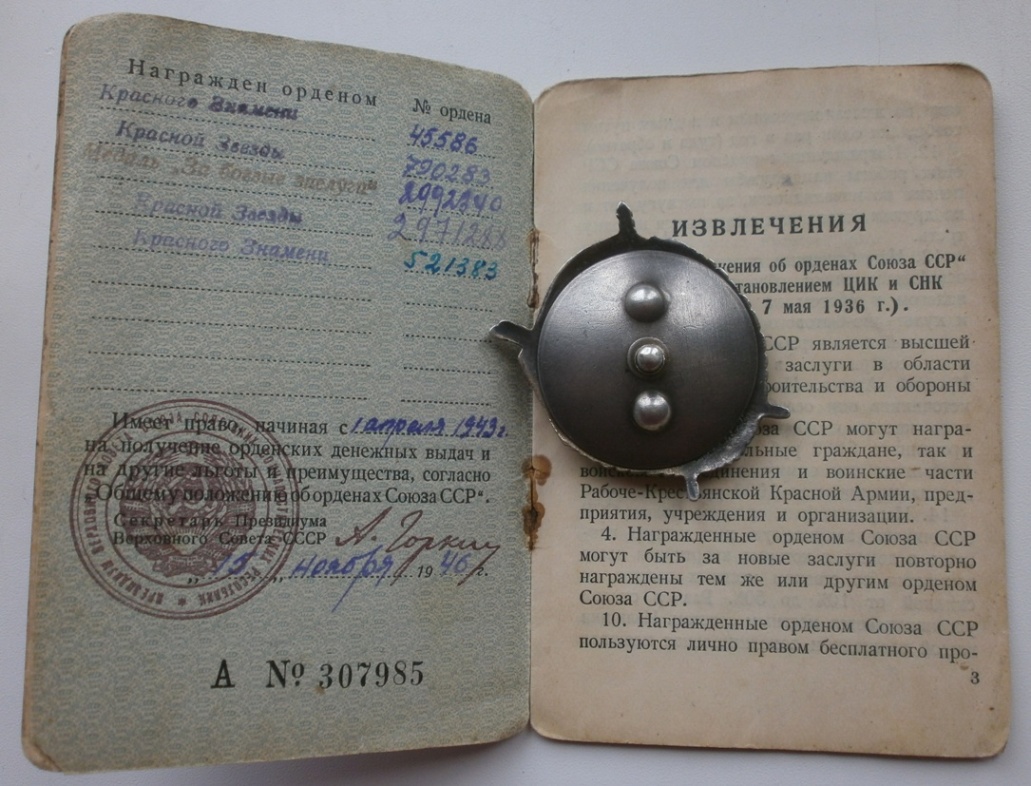 Награжден орденом
№ ордена
Красного Знамени
45586
Красной Звезды
790283
Медаль „За боевые заслуги“
2092340
Красной Звезды
2971288
Красного Знамени
521383
Имеет право, начиная с 1 апреля 1943 г.
на получение орденских денежных выдач и
на другие льготы и преимущества, согласно
„Общему положению об орденах Союза ССР“.
Секретарь Президиума
Верховного Совета СССР А. Горкин
„15„ ноября 1946 г.
А № 307985
ИЗВЛЕЧЕНИЯ
об орденах Союза ССР“
ЦИК и СНК
7 мая 1936 г.).
ССР является высшей
заслуги в области
и обороны
ССР могут награ-
граждане, так и
и воинские части
Рабоче-Крестьянской Красной Армии, пред-
приятия, учреждения и организации.
4. Награжденные орденом Союза ССР
могут быть за новые заслуги повторно
награждены тем же или другим орденом
Союза ССР.
10. Награжденные орденом Союза ССР
пользуются лично правом бесплатного про-
3